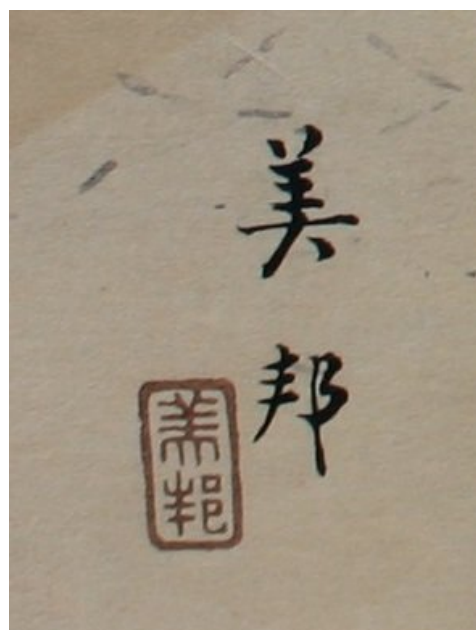 美邦
美邦